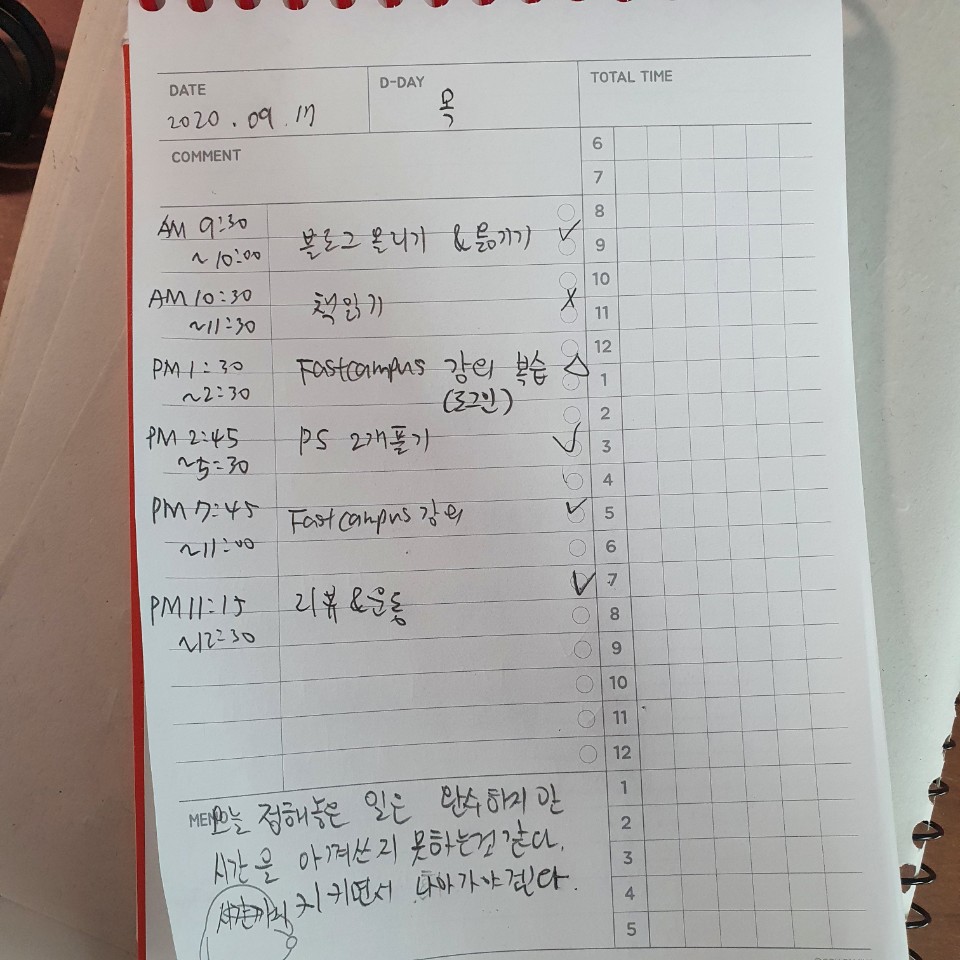 DATE
2020.09.17
D-DAY
목
TOTAL TIME
COMMENT
AM 9:30
~10:00
블로그 올리기 & 옮기기
AM 10:30
~11:30
책읽기
PM 1:30
~2:30
Fastcampus 강의 복습
(로그인)
PM 2:45
~5:30
PS 2개풀기
PM 7:45
~11:00
Fastcampus 강의
PM 11:15
~12:30
리뷰 & 운동
6
7
8
9
10
11
12
1
2
3
4
5
6
7
8
9
10
11
12
1
2
3
4
5
MEMO
오늘 정해놓은 일은 완수하지만
시간을 아껴쓰지 못하는것 같다.
지키면서 나아가야겠다.